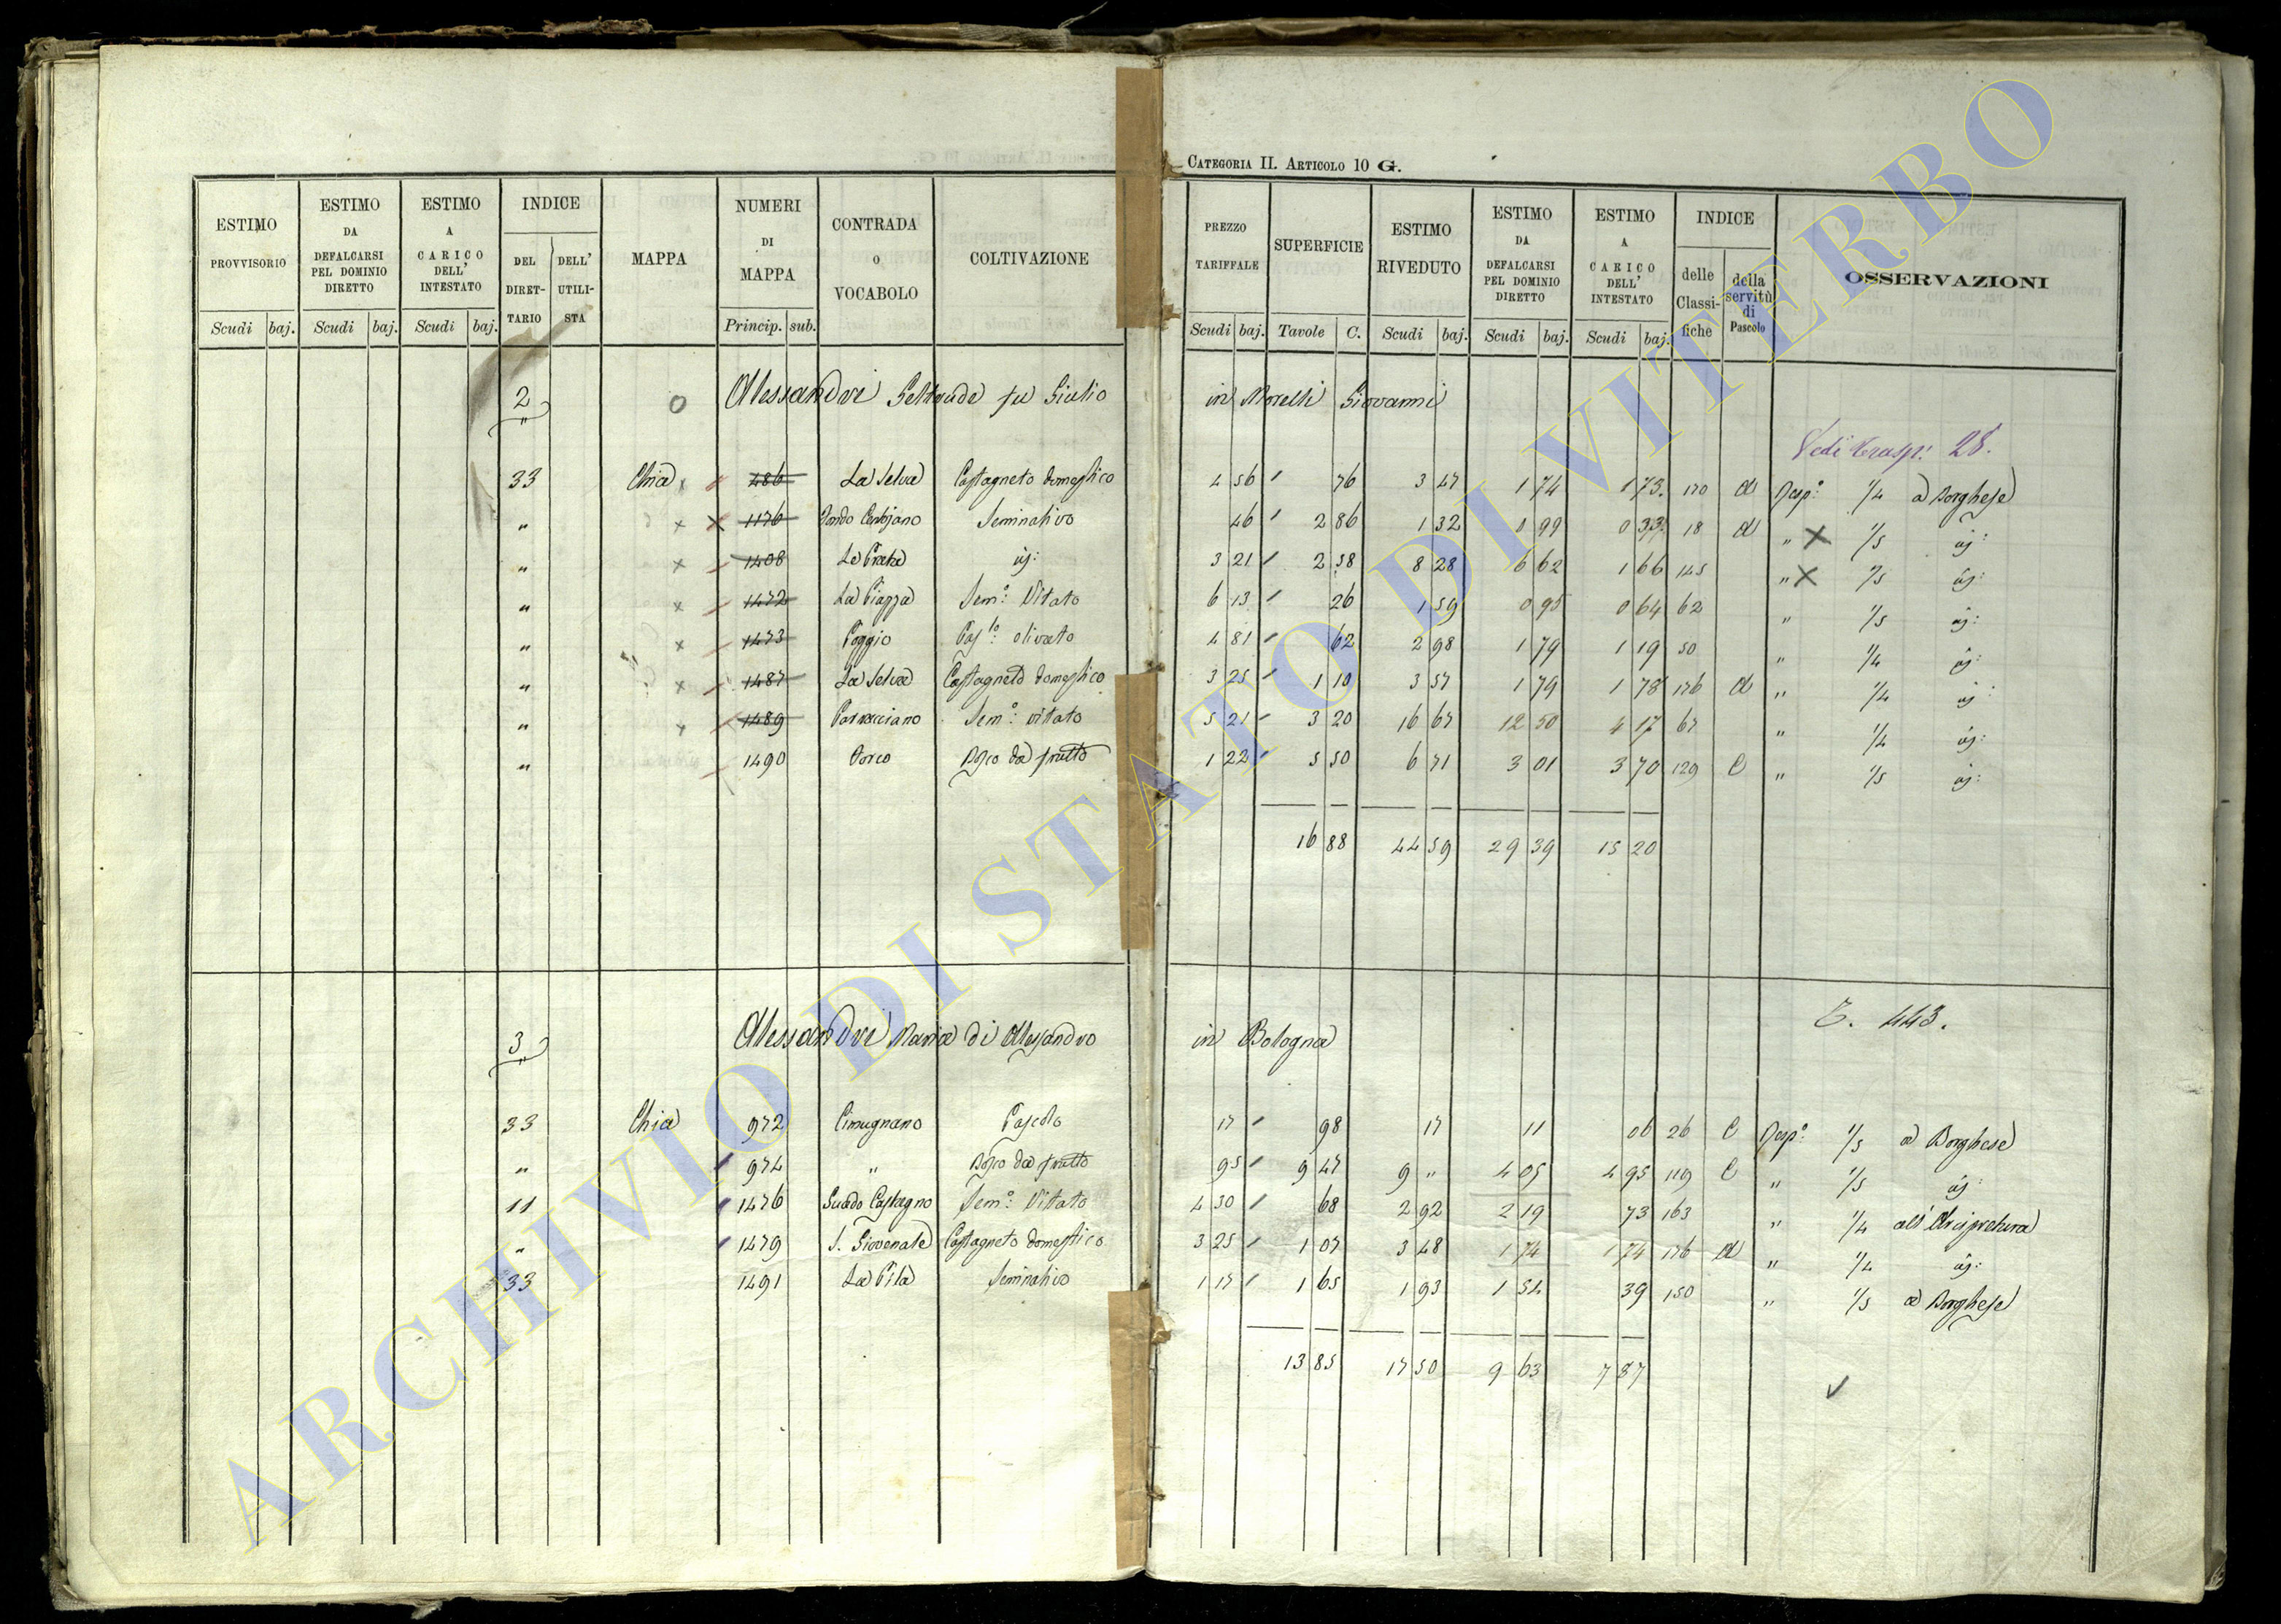 CATEGORIA II. ARTICOLO 10 G.
ESTIMO PROVVISORIO Scudi baj.
ESTIMO DA DEFALCARSI PEL DOMINIO DIRETTO Scudi baj.
ESTIMO A CARICO DELL' INTESTATO Scudi baj.
INDICE DEL DIRET-TARIO DELL' UTILI-STA
MAPPA
NUMERI DI MAPPA Princip. sub.
CONTRADA O VOCABOLO
COLTIVAZIONE
PREZZO TARIFFALE Scudi baj.
SUPERFICIE Tavole C.
ESTIMO RIVEDUTO Scudi baj.
ESTIMO DA DEFALCARSI PEL DOMINIO DIRETTO Scudi baj.
ESTIMO A CARICO DELL' INTESTATO Scudi baj.
INDICE delle Classi-fiche della servitù di Pascolo
OSSERVAZIONI
2 Alessandri Geltrude fu Giulio in Morelli Giovanni
Vedi trasp: 28.
33 Chia 486 La Selva Castagneto domestico 4 56 76 3 47 1 74 1 73 170 d Resp: 1/4 a Borghese
" 1176 Seminativo 46 2 86 1 32 0 99 0 33 18 d " 1/5 id:
" 1408 Le Prata id: 3 21 2 58 8 28 6 62 1 66 145 " 1/5 id:
" 1472 La Piazza Sem:o Vitato 6 13 26 1 59 0 95 0 64 62 " 1/5 id:
" 1473 Poggio Pas:lo olivato 4 81 62 2 98 1 79 1 19 50 " 1/4 id:
" 1487 La Selva Castagneto domestico 3 25 1 10 3 57 1 79 1 78 176 d " 1/4 id:
" 1489 Sem:o vitato 5 21 3 20 16 67 12 50 4 17 67 " 1/4 id:
" 1490 Bosco da frutto 1 22 5 50 6 71 3 01 3 70 129 C " 1/5 id:
16 88 44 59 29 39 15 20
3 Alessandri Maria di Alessandro in Bologna
T. 443.
33 Chia 972 Cimugnano Pascolo 17 98 17 11 06 26 C Resp: 1/5 a Borghese
" 974 " Bosco da frutto 95 9 47 9 " 4 05 4 95 119 C " 1/5 id:
11 1476 Guado Castagno Sem:o Vitato 4 30 68 2 92 2 19 73 163 " 1/4 all'Arcipretura
" 1479 S. Giovenale Castagneto domestico 3 25 1 07 3 48 1 74 1 74 176 d " 1/4 id:
33 1491 La Pila Seminativo 1 17 1 65 1 93 1 54 39 150 " 1/5 a Borghese
13 85 17 50 9 63 7 87
ARCHIVIO DI STATO DI VITERBO